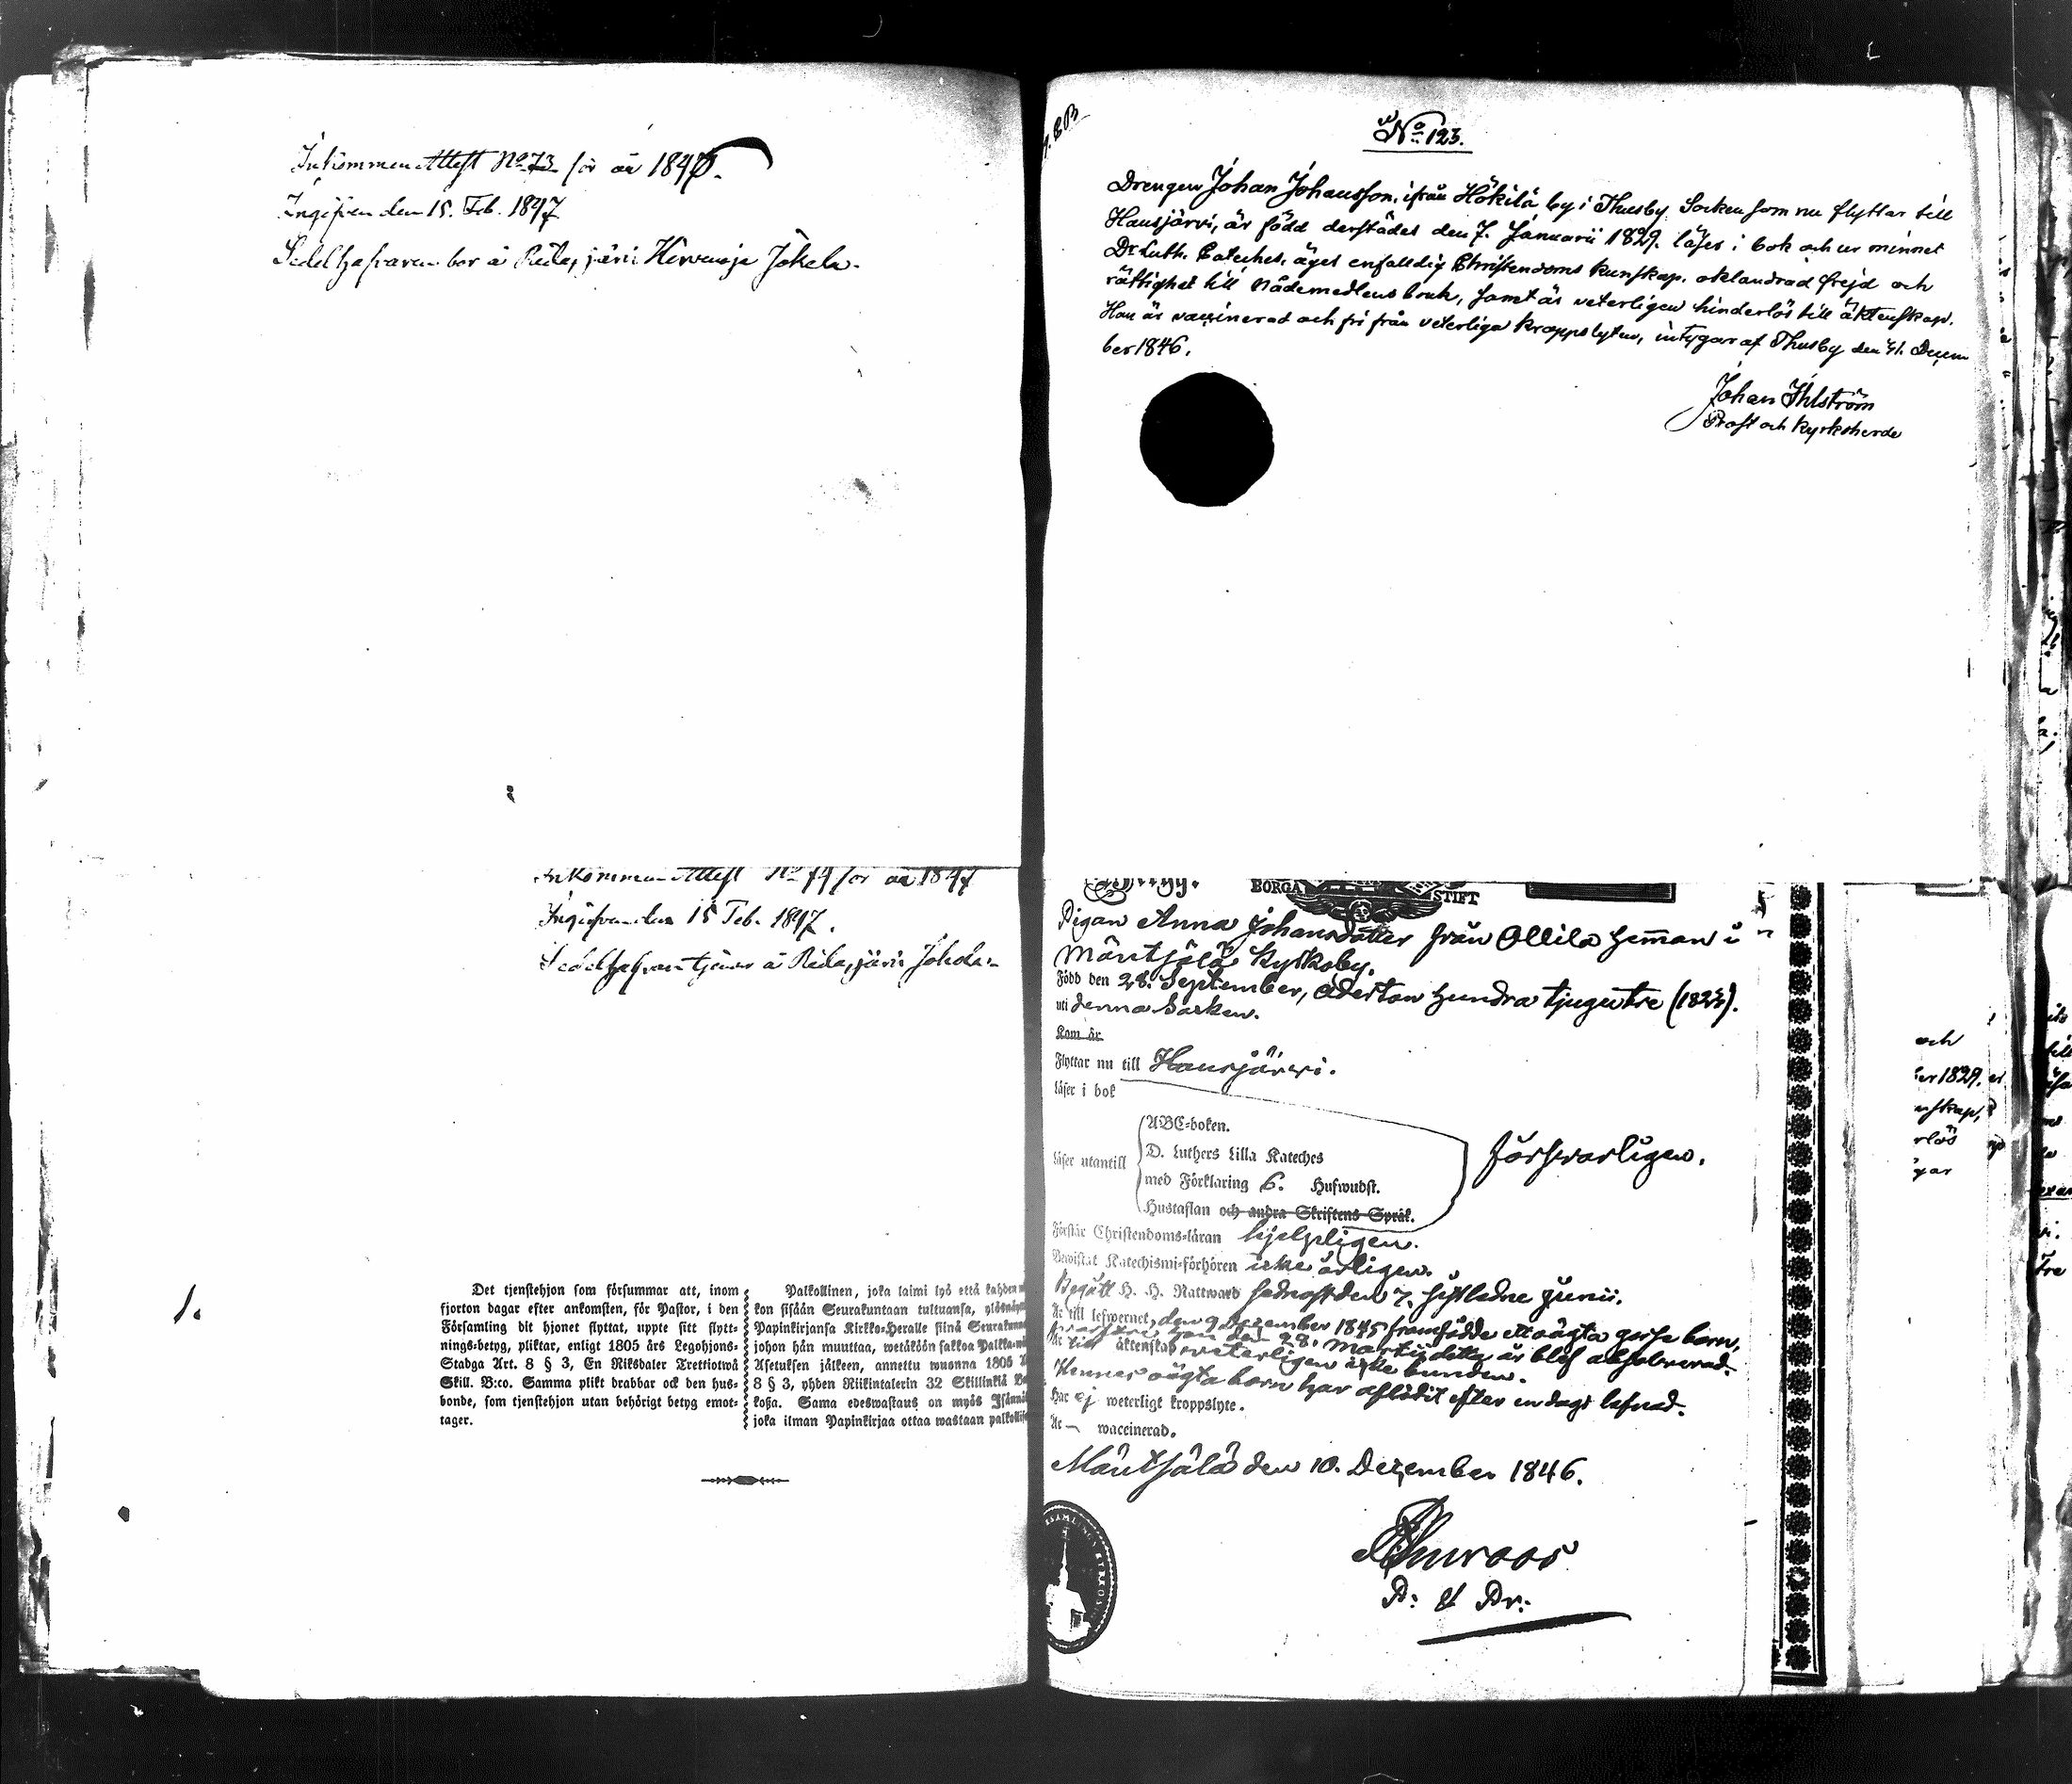 Inkommen Attest No 73 för år 1847.
Ingifven den 15. Feb. 1847
Sedelhafvaren bor å Ridasjärvi Hirvenoja Jokela.
Inkommen Attest No 74 för år 1847
Ingifven den 15 Feb. 1847.
Sedelhafvaren tjenar å Ridasjärvi
1.
Det tjenstehjon som försummar att, inom
fjorton dagar efter ankomsten, för Pastor, i den
Församling dit hjonet flyttat, uppte sitt flytt-
nings-betyg, pliktar, enligt 1805 års Legohjons-
Stadga Art. 8 § 3, En Riksdaler Trettiotwå
Skill. B:co. Samma plikt drabbar ock den hus-
bonde, som tjenstehjon utan behörigt betyg emot-
tager.
Palkollinen, joka laimi lyö että kahden
kon sisään Seurakuntaan tultuansa,
Papinkirjansa Kirkko-Heralle siinä
johon hän muuttaa, wetäköön sakkoa
Asetuksen jälkeen, annettu wuonna 1805
8 § 3, yhden Riikintalerin 32 Skillinkiä
koßa. Sama edeswastaus on myös
joka ilman Papinkirjaa ottaa wastaan
No 123.
Drengen Johan Johansson, ifrån Hökilä by i Thusby Socken som nu flyttar till
Hausjärvi, är född derstädes den 7. Januarii 1829. läser i bok och ur minnet
Dr Luth. Cateches. äger enfalldig Christendoms kunskap. oklandrad frejd och
rättighet till Nådemedlens bruk, samt är veterligen hinderlös till äktenskap.
Han är vaccinerad och fri från veterliga kroppslyten, intygar af Thusby den 41. Decem
ber 1846.
Johan Ihlström
Prost och Kyrkoherde
BORGÅ STIFT
Pigan Anna Johansdotter från Ollila Heman i
Mäntsälä Kyrkoby.
Född den 28. September, Aderton hundra tjugutre (1823).
uti denna Socken.
Kom år
Flyttar nu till Hausjärvi.
läser i bok
ABC-boken.
läser utantill D. Luthers Lilla Kateches
med Förklaring 6. Hufwudst.
Hustaflan och andra Skriftens Språk.
försvarligen.
Förstår Christendoms-läran hjelpligen.
Bewistat Katechismi-förhören icke årligen.
Begått H. H. Nattward sednast den 7. sistledne Junii.
Är till lefwernet, den 9 Dezember 1845 framfödde ett oägta gosse barn,
hvarföre hon den 28. Martii detta år blef absolverad.
Är till äktenskap veterligen icke bunden.
Hennes oägta barn har aflidit efter en dags lefnad.
Har ej weterligt kroppslyte.
Är — waccinerad.
Mäntsälä den 10. Dezember 1846.
P: & Pr:
och
er 1829.
nskap,
rlös
gar